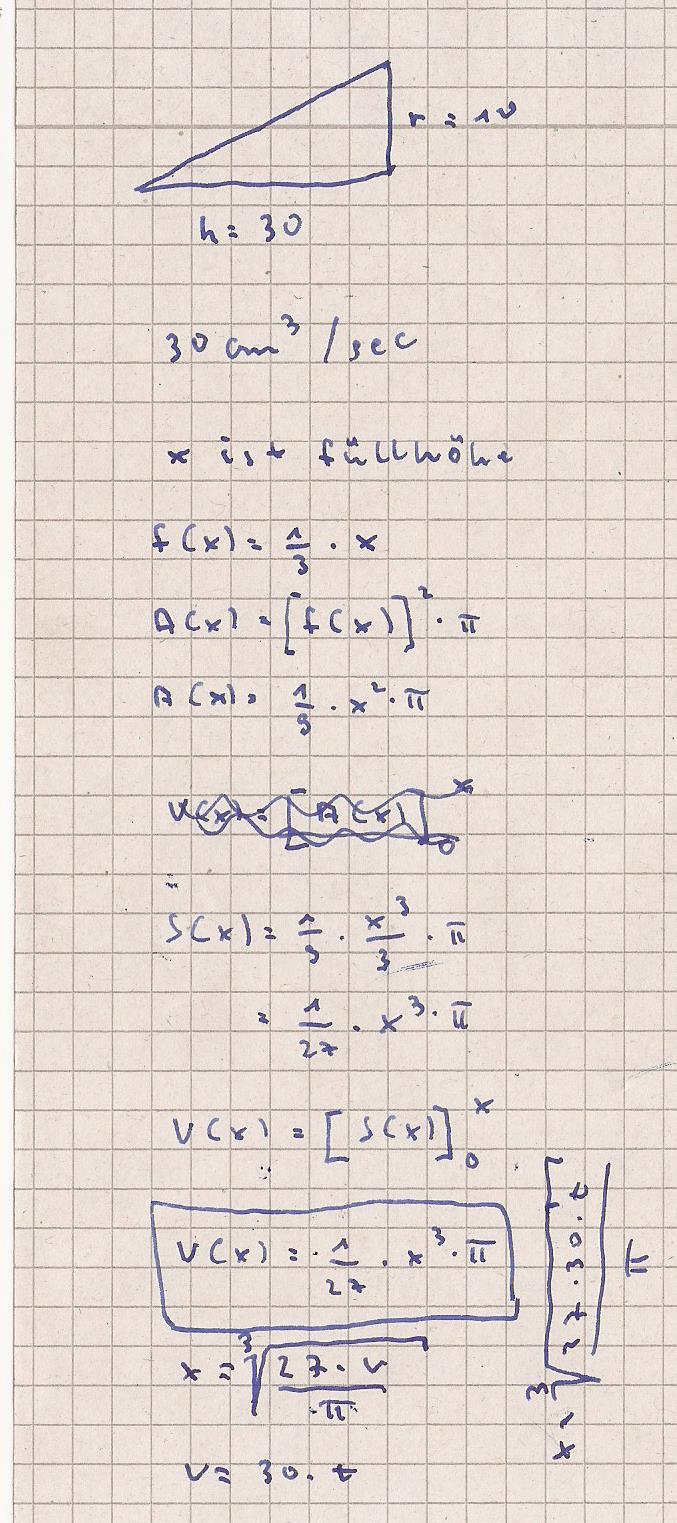 r = 10
h = 30
30 cm³ / sec
x ist füllhöhe
f(x) = 1/3 · x
A(x) = [f(x)]² · π
A(x) = 1/9 · x² · π
V(x) = [A(x)]ₓ₀
S(x) = 1/9 · x³/3 · π
= 1/27 · x³ · π
V(x) = [S(x)]₀ˣ
V(x) = 1/27 · x³ · π
x = ³√(27 · V / π)
V = 30 · t
x = ³√(27 · 30 · t / π)